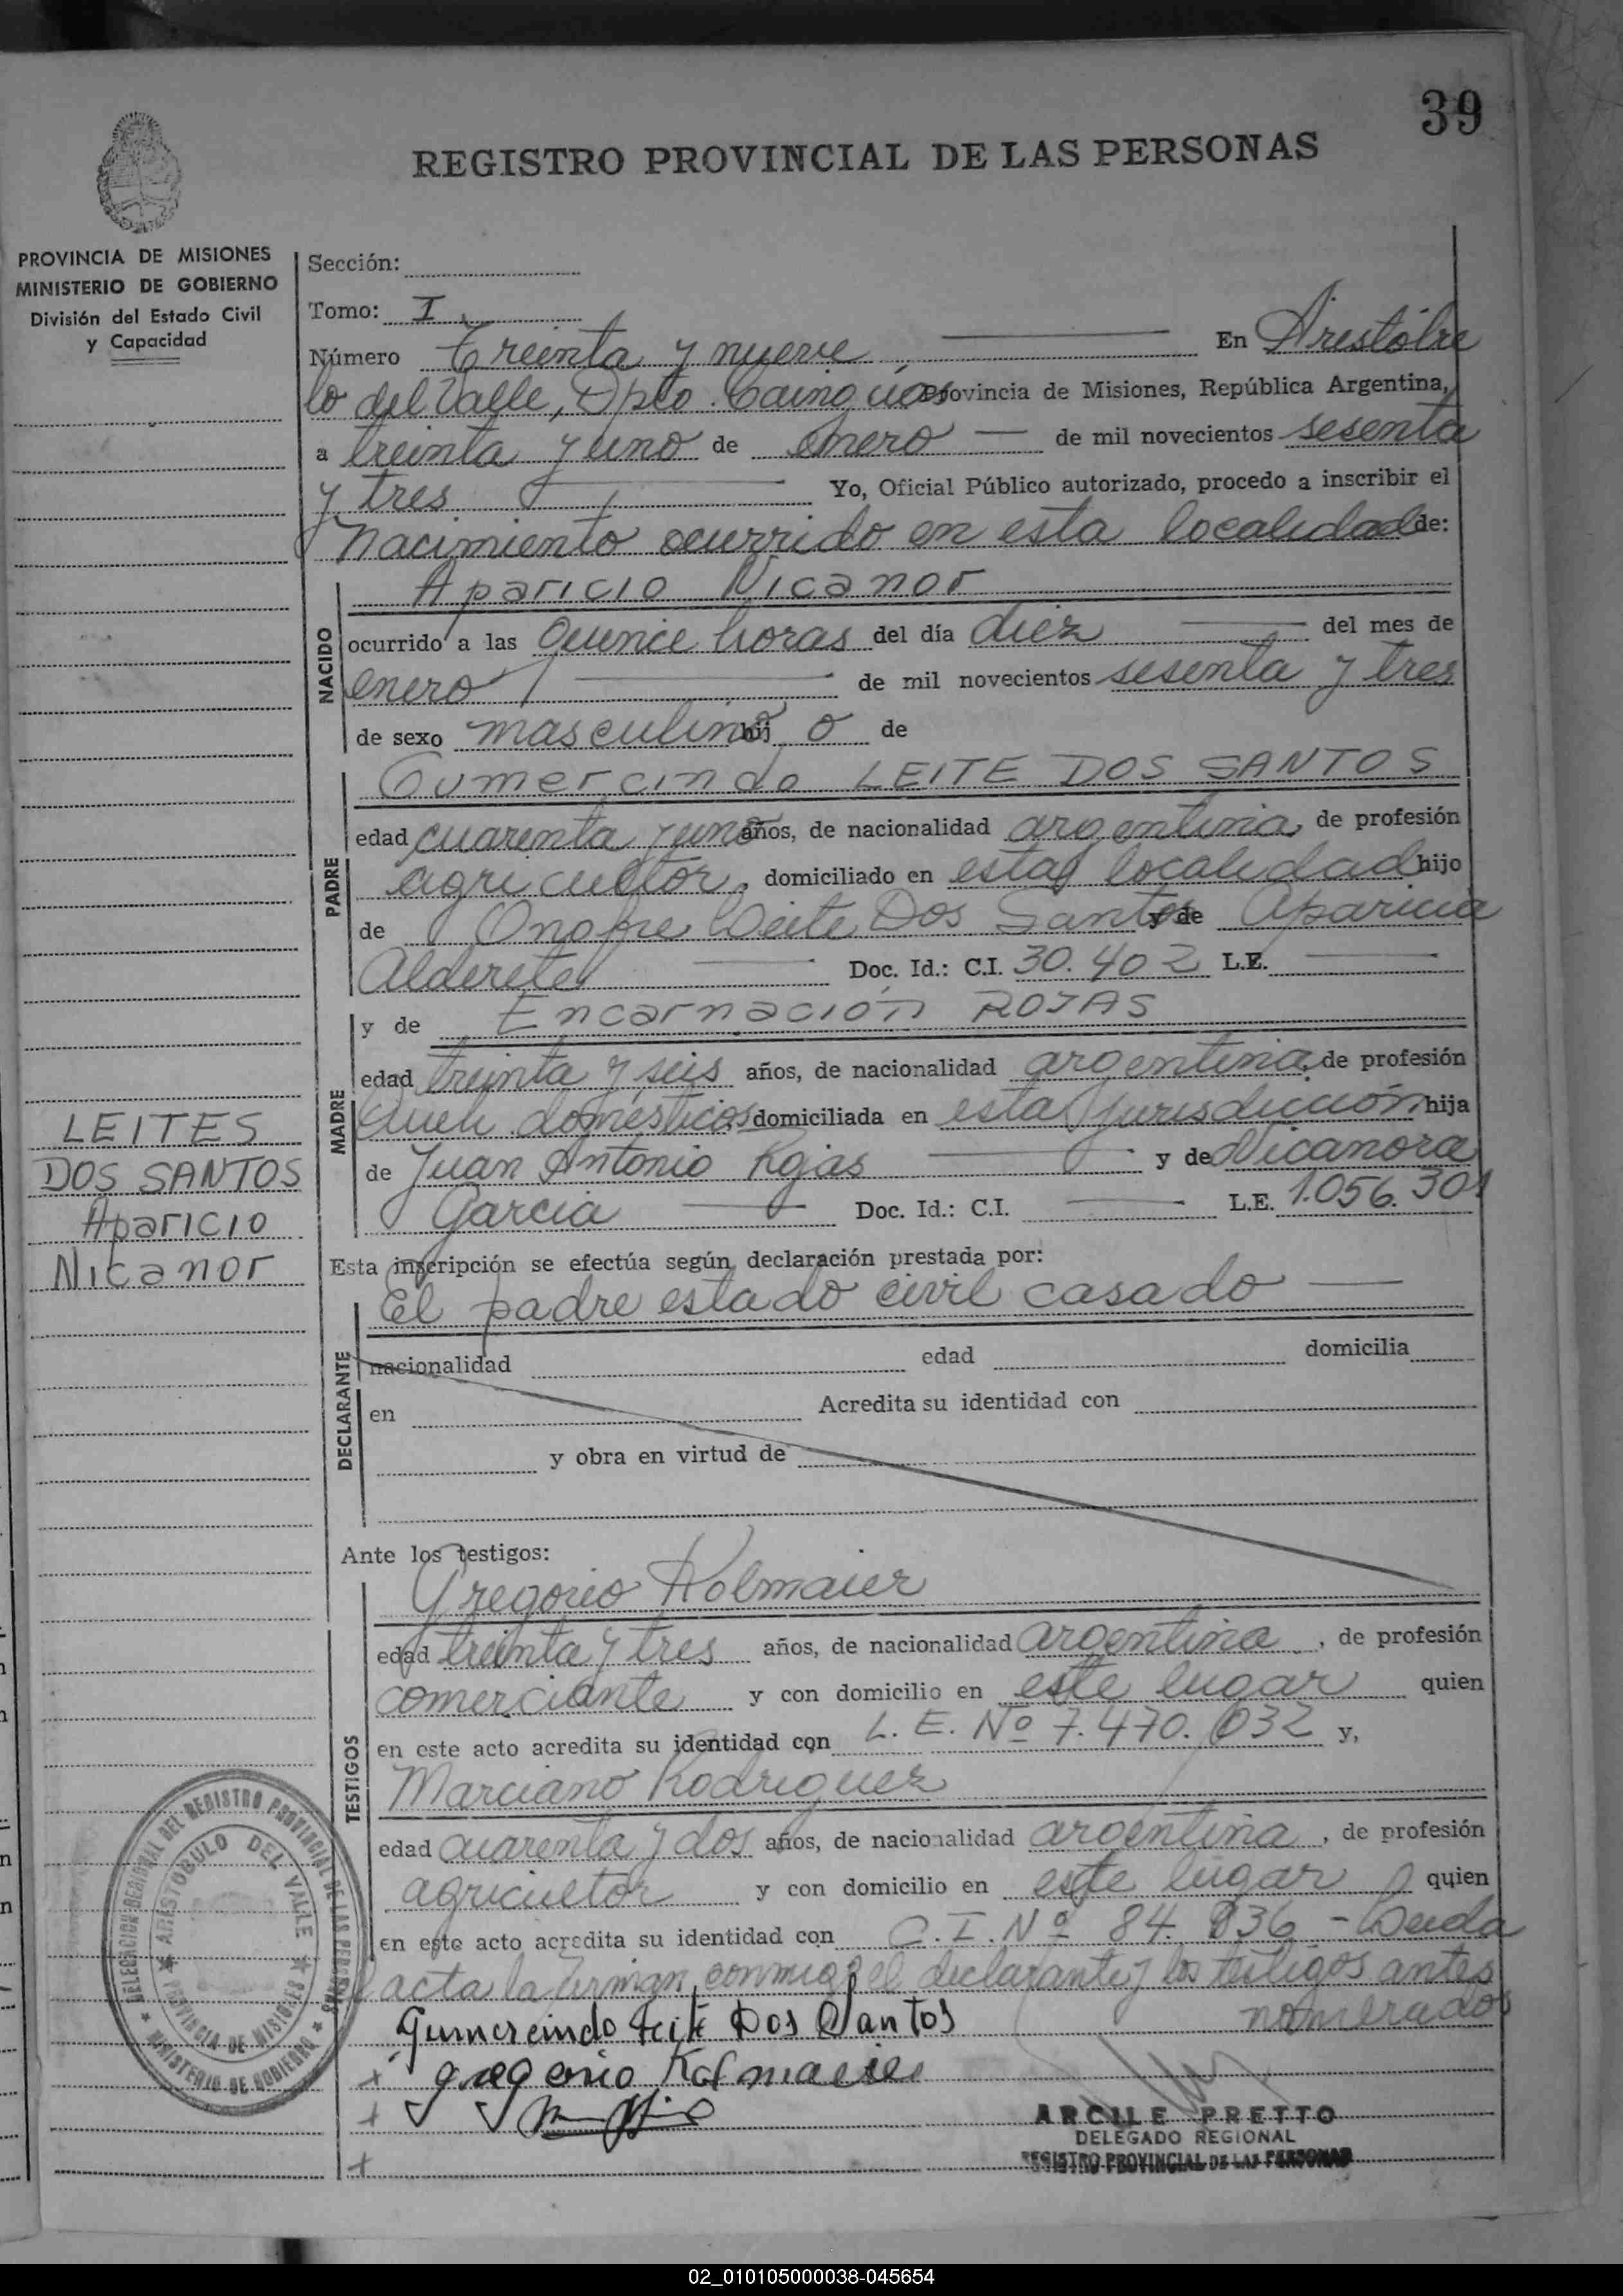 39
REGISTRO PROVINCIAL DE LAS PERSONAS
PROVINCIA DE MISIONES
MINISTERIO DE GOBIERNO
División del Estado Civil
y Capacidad
Sección:
Tomo: I
Número Treinta y nueve En Aristóbu
lo del Valle, Dpto. Cainguás Provincia de Misiones, República Argentina,
a treinta y uno de enero de mil novecientos sesenta
y tres Yo, Oficial Público autorizado, procedo a inscribir el
Nacimiento ocurrido en esta localidad de:
NACIDO
Aparicio Nicanor
ocurrido a las quince horas del día diez del mes de
enero de mil novecientos sesenta y tres
de sexo masculino hij o de
PADRE
Gumercindo LEITE DOS SANTOS
edad cuarenta y uno años, de nacionalidad argentina, de profesión
agricultor, domiciliado en esta localidad hijo
de Onofre Leite Dos Santos y de Aparicia
Alderete Doc. Id.: C.I. 30.402 L.E.
MADRE
y de Encarnación ROJAS
edad treinta y seis años, de nacionalidad argentina, de profesión
Queh. domésticos domiciliada en esta jurisdicción hija
de Juan Antonio Rojas y de Nicanora
Garcia Doc. Id.: C.I. L.E. 1.056.301
LEITES
DOS SANTOS
Aparicio
Nicanor
Esta inscripción se efectúa según declaración prestada por:
DECLARANTE
El padre estado civil casado
nacionalidad edad domicilia
en Acredita su identidad con
y obra en virtud de
Ante los testigos:
TESTIGOS
Gregorio Kolmaier
edad treinta y tres años, de nacionalidad argentina, de profesión
comerciante y con domicilio en este lugar quien
en este acto acredita su identidad con L. E. Nº 7.470.032 y,
Marciano Rodriguez
edad cuarenta y dos años, de nacionalidad argentina, de profesión
agricultor y con domicilio en este lugar quien
en este acto acredita su identidad con C.I. Nº 84.836 - Leida
el acta la firman conmigo el declarante y los testigos antes
nombrados
Gumercindo Leite Dos Santos
gregorio Kolmaier
DELEGACION REGIONAL DEL REGISTRO PROVINCIAL DE LAS PERSONAS
MINISTERIO DE GOBIERNO
ARISTOBULO DEL VALLE
PROVINCIA DE MISIONES
ARCILE PRETTO
DELEGADO REGIONAL
REGISTRO PROVINCIAL DE LAS PERSONAS
02_010105000038-045654